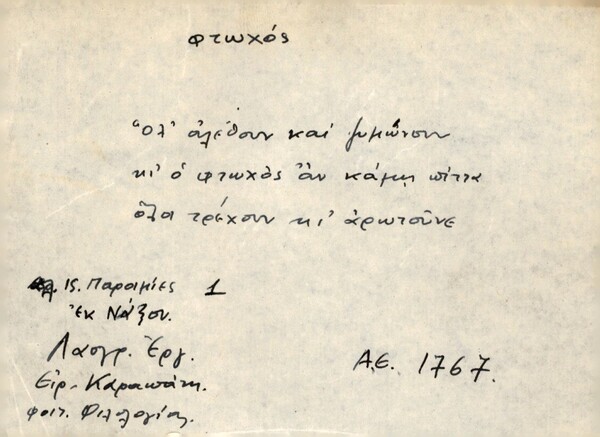 φτωχός
Ὅλ' ἀλέθουν καί ζυμώνουν
κι' ὁ φτωχός ἄν κάμῃ πίττα
ὅλοι τρέχουν κι' ἀρωτοῦνε
15. Παροιμίες 1
ἐκ Νάξου.
Λαογρ. Ἐργ.
Εἰρ. Καραπάτη.
φοιτ. Φιλολογίας.
Α.Ε. 1767.